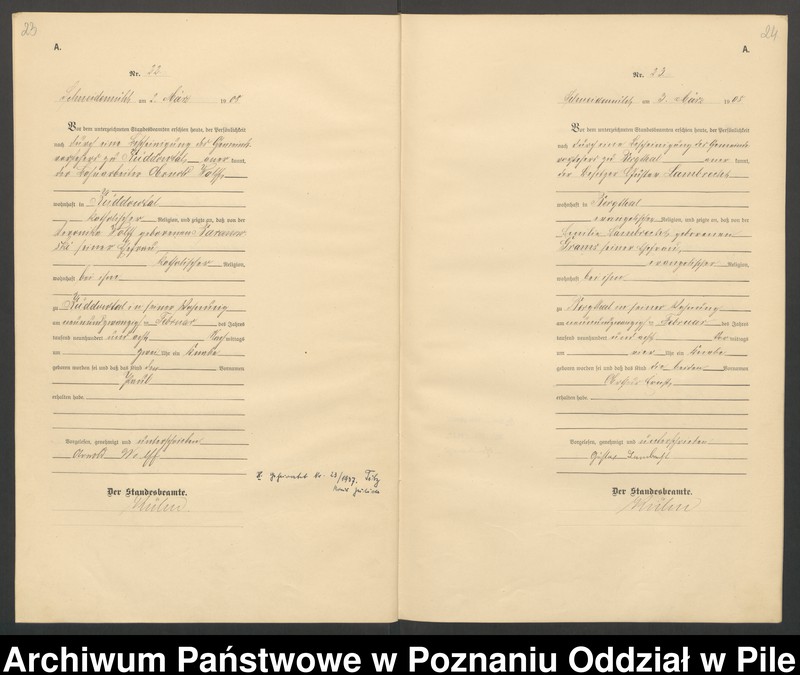 23
A.
Nr. 22
Schneidemühl am 2. März 1908
Vor dem unterzeichneten Standesbeamten erschien heute, der Persönlichkeit
nach durch eine Bescheinigung des Gemeinde
vorstehers zu Küddowtal anerkannt,
der Bahnarbeiter Arnold Wolff,
wohnhaft in Küddowtal
katholischer Religion, und zeigte an, daß von der
Veronika Wolff geborenen
seiner Ehefrau,
katholischer Religion,
wohnhaft bei ihm
zu Küddowtal in seiner Wohnung
am neunundzwanzigsten Februar des Jahres
tausend neunhundert und acht Nachmittags
um zwei Uhr ein Knabe
geboren worden sei und daß das Kind den Vornamen
Paul
erhalten habe.
Vorgelesen, genehmigt und unterschrieben
Arnold Wolff
Der Standesbeamte.
24
A.
Nr. 23
Schneidemühl am 3. März 1908
Vor dem unterzeichneten Standesbeamten erschien heute, der Persönlichkeit
nach durch eine Bescheinigung des Gemeinde
vorstehers zu Bergthal anerkannt,
der Besitzer Gustav Lambrecht
wohnhaft in Bergthal
evangelischer Religion, und zeigte an, daß von der
Lambrecht geborenen
seiner Ehefrau,
evangelischer Religion,
wohnhaft bei ihm
zu Bergthal in seiner Wohnung
am neunundzwanzigsten Februar des Jahres
tausend neunhundert und acht Vormittags
um vier Uhr ein Knabe
geboren worden sei und daß das Kind die beiden Vornamen
erhalten habe.
Vorgelesen, genehmigt und unterschrieben
Gustav Lambrecht
Der Standesbeamte.
Archiwum Państwowe w Poznaniu Oddział w Pile